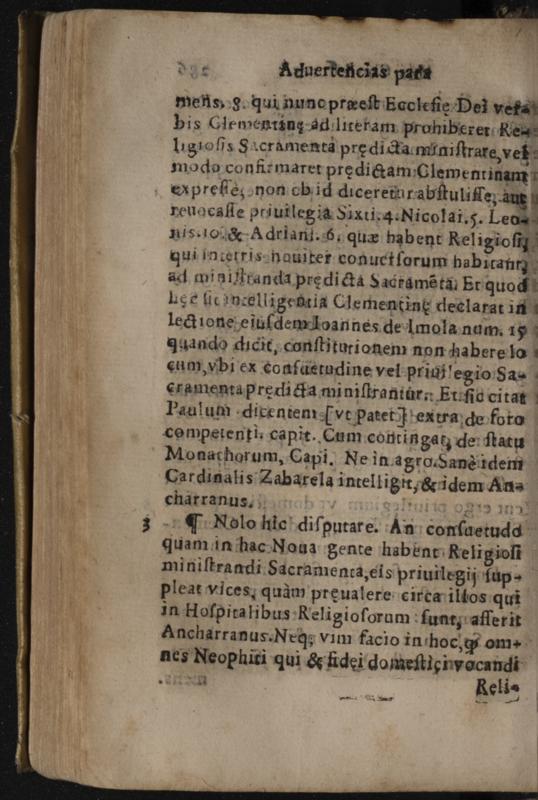 Aduertencias para
mens. 8. qui nunc præest Ecclesię Dei ver-
bis Clementinę ad literam prohiberet Re-
ligiosis Sacramenta prędicta ministrare, vel
modo confirmaret prędictam Clementinam
expresse, non ob id diceretur abstulisse, aut
reuocasse priuilegia Sixti. 4. Nicolai. 5. Leo-
nis. 10. & Adriani. 6. quæ habent Religiosi,
qui in terris nouiter conuersorum habitant,
ad ministranda prędicta Sacramēta. Et quod
hęc sit intelligentia Clementinę declarat in
lectione eiusdem Ioannes de Imola num. 15
quando dicit, constitutionem non habere lo
cum, vbi ex consuetudine vel priuilegio Sa-
cramenta prędicta ministrantur. Et sic citat
Paulum dicentem [vt patet] extra de foro
competenti. capit. Cum contingat, de statu
Monachorum, Capi. Ne in agro. Sanè idem
Cardinalis Zabarela intelligit, & idem An-
charranus.
3 ¶ Nolo hic disputare. An consuetudo
quam in hac Noua gente habent Religiosi
ministrandi Sacramenta, eis priuilegij sup-
pleat vices, quàm pręualere circa illos qui
in Hospitalibus Religiosorum sunt, asserit
Ancharranus. Neq; vim facio in hoc, ꝙ om-
nes Neophiti qui & fidei domestici vocandi
Reli-